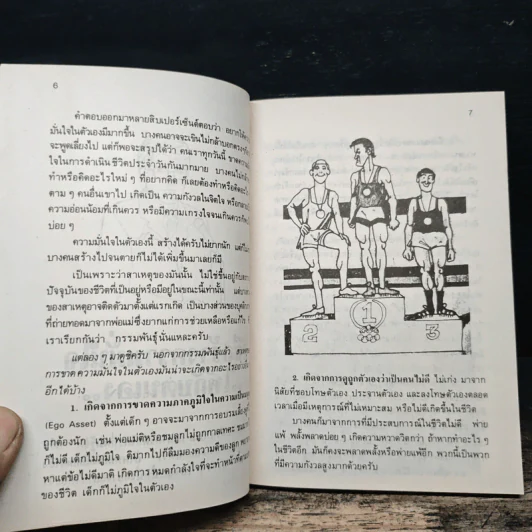 6
คำตอบออกมาหลายสิบเปอร์เซ็นต์ตอบว่า อยากให้
มั่นใจในตัวเองมีมากขึ้น บางคนอาจจะเขินไม่กล้าบอกตรงๆ
จะพูดเลี่ยงไป แต่ก็พอจะสรุปได้ว่า คนเราทุกวันนี้ ขาดความ
ใจในการดำเนินชีวิตประจำวันกันมากมาย บางคนไม่กล้า
ทำหรือคิดอะไรใหม่ ๆ ที่อยากคิด ก็เลยต้องทำหรือคิดอะไร
ตาม ๆ คนอื่นเขาไป เกิดเป็น ความกังวลในจิตใจ หรือกลาย
ความอ่อนน้อมที่เกินควร หรือมีความเกรงใจจนเกินควร
บ่อย ๆ
ความมั่นใจในตัวเองนี้ สร้างได้ครับไม่ยากนัก แต่
บางคนสร้างไปจนตายก็ไม่ได้เพิ่มขึ้นมาเลยก็มี
เป็นเพราะว่าสาเหตุของมันนั้น ไม่ใช่ขึ้นอยู่กับ
ปัจจุบันของชีวิตที่เป็นอยู่หรือมีอยู่ในขณะนี้เท่านั้น แต่
ของสาเหตุอาจติดตัวมาตั้งแต่แรกเกิด เป็นบางส่วนของ
ที่ถ่ายทอดมาจากพ่อแม่ซึ่งยากแก่การช่วยเหลือหรือแก้ไข
เราเรียกกันว่า กรรมพันธุ์นั่นแหละครับ
แต่ลอง ๆ มาดูซิครับ นอกจากกรรมพันธุ์แล้ว
การขาดความมั่นใจในตัวเองมันน่าจะเกิดจากอะไร
อีกได้บ้าง
1. เกิดจากการขาดความภาคภูมิใจในความเป็น
(Ego Asset) ตั้งแต่เด็ก ๆ อาจจะมาจากการอบรมเลี้ยงดู
ถูกต้องนัก เช่น พ่อแม่ติหรือชมลูกไม่ถูกกาลเทศะ
ก็ไม่ดี เด็กไม่ภูมิใจ ติมากไปก็ลืมมองความดีของลูก
หาแต่ข้อไม่ดีมาติ เกิดการ หมดกำลังใจที่จะทำหน้าที่
ของชีวิต เด็กก็ไม่ภูมิใจในตัวเอง
7
2
1
3
2. เกิดจากการดูถูกตัวเองว่าเป็นคนไม่ดี ไม่เก่ง มาจาก
นิสัยที่ชอบโทษตัวเอง ประจานตัวเอง และลงโทษตัวเองตลอด
เวลาเมื่อมีเหตุการณ์ที่ไม่เหมาะสม หรือไม่ดีเกิดขึ้นในชีวิต
บางคนก็มาจากการที่มีประสบการณ์ในชีวิตไม่ดี พ่าย
แพ้ พลั้งพลาดบ่อย ๆ เกิดความหวาดวิตกว่า ถ้าหากทำอะไร ๆ
ในชีวิตอีก มันก็คงจะพลาดพลั้งหรือพ่ายแพ้อีก พวกนี้เป็นพวก
ที่มีความกังวลสูงมากด้วยครับ